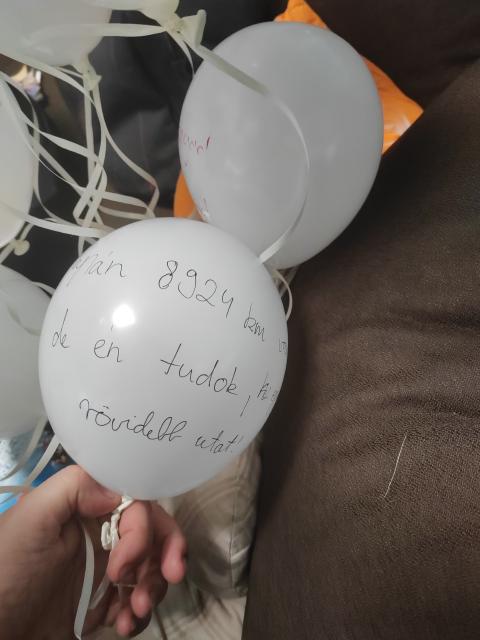 8924 km
de én tudok,
rövidebb utat!